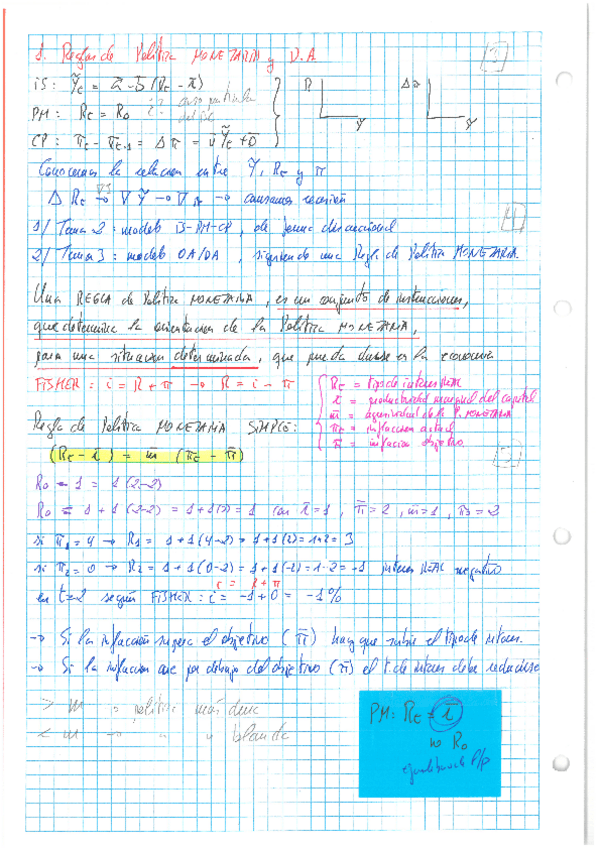 1. Reglas de Política MONETARIA y D.A
[3]
IS: Ỹt = ā - b̄ (Rt - r̄)
PM: Rt = R0
CP: πt - πt-1 = Δπ = v̄ Ỹt + ō
R
Y
Δπ
Ỹ
Conocemos la relacion entre Ỹ, Rt y π
Δ Rt → ∇ Ỹ → ∇π → causamos recesión
[4]
1/ Tema 2: modelo IS-PM-CP, de forma discrecional
2/ Tema 3: modelo OA/DA, siguiendo una Regla de Política MONETARIA.
Una REGLA de Política MONETARIA, es un conjunto de instrucciones,
que determina la orientacion de la Política MONETARIA,
para una situacion determinada, que pueda darse en la economia
FISHER: i = R + π → R = i - π
Rt = tipo de interes REAL
r̄ = productividad marginal del capital
m̄ = agresividad de la P. MONETARIA
πt = inflacion actual
π̄ = inflacion objetivo.
Regla de Política MONETARIA SIMPLE:
(Rt - r̄) = m̄ (πt - π̄)
R0 - 1 = 1 (2-2)
R0 = 1 + 1 (2-2) = 1 + 1(0) = 1 con r̄ = 1, π̄ = 2, m̄ = 1,
si π1 = 4 → R1 = 1 + 1 (4-2) = 1 + 1 (2) = 1+2 = 3
si π2 = 0 → R2 = 1 + 1 (0-2) = 1 + 1 (-2) = 1-2 = -1 interes REAL negativo
i = R + π
en t=2 según FISHER: i = -1 + 0 = -1%
→ Si la inflacción supera el objetivo (π̄) hay que subir el tipo de interes.
→ Si la inflacion cae por debajo del objetivo (π̄) el t. de interes debe reducirse
> m → política más dura
< m → " " y blanda
PM: Rt = r̄
no R0
equilibrio l/p